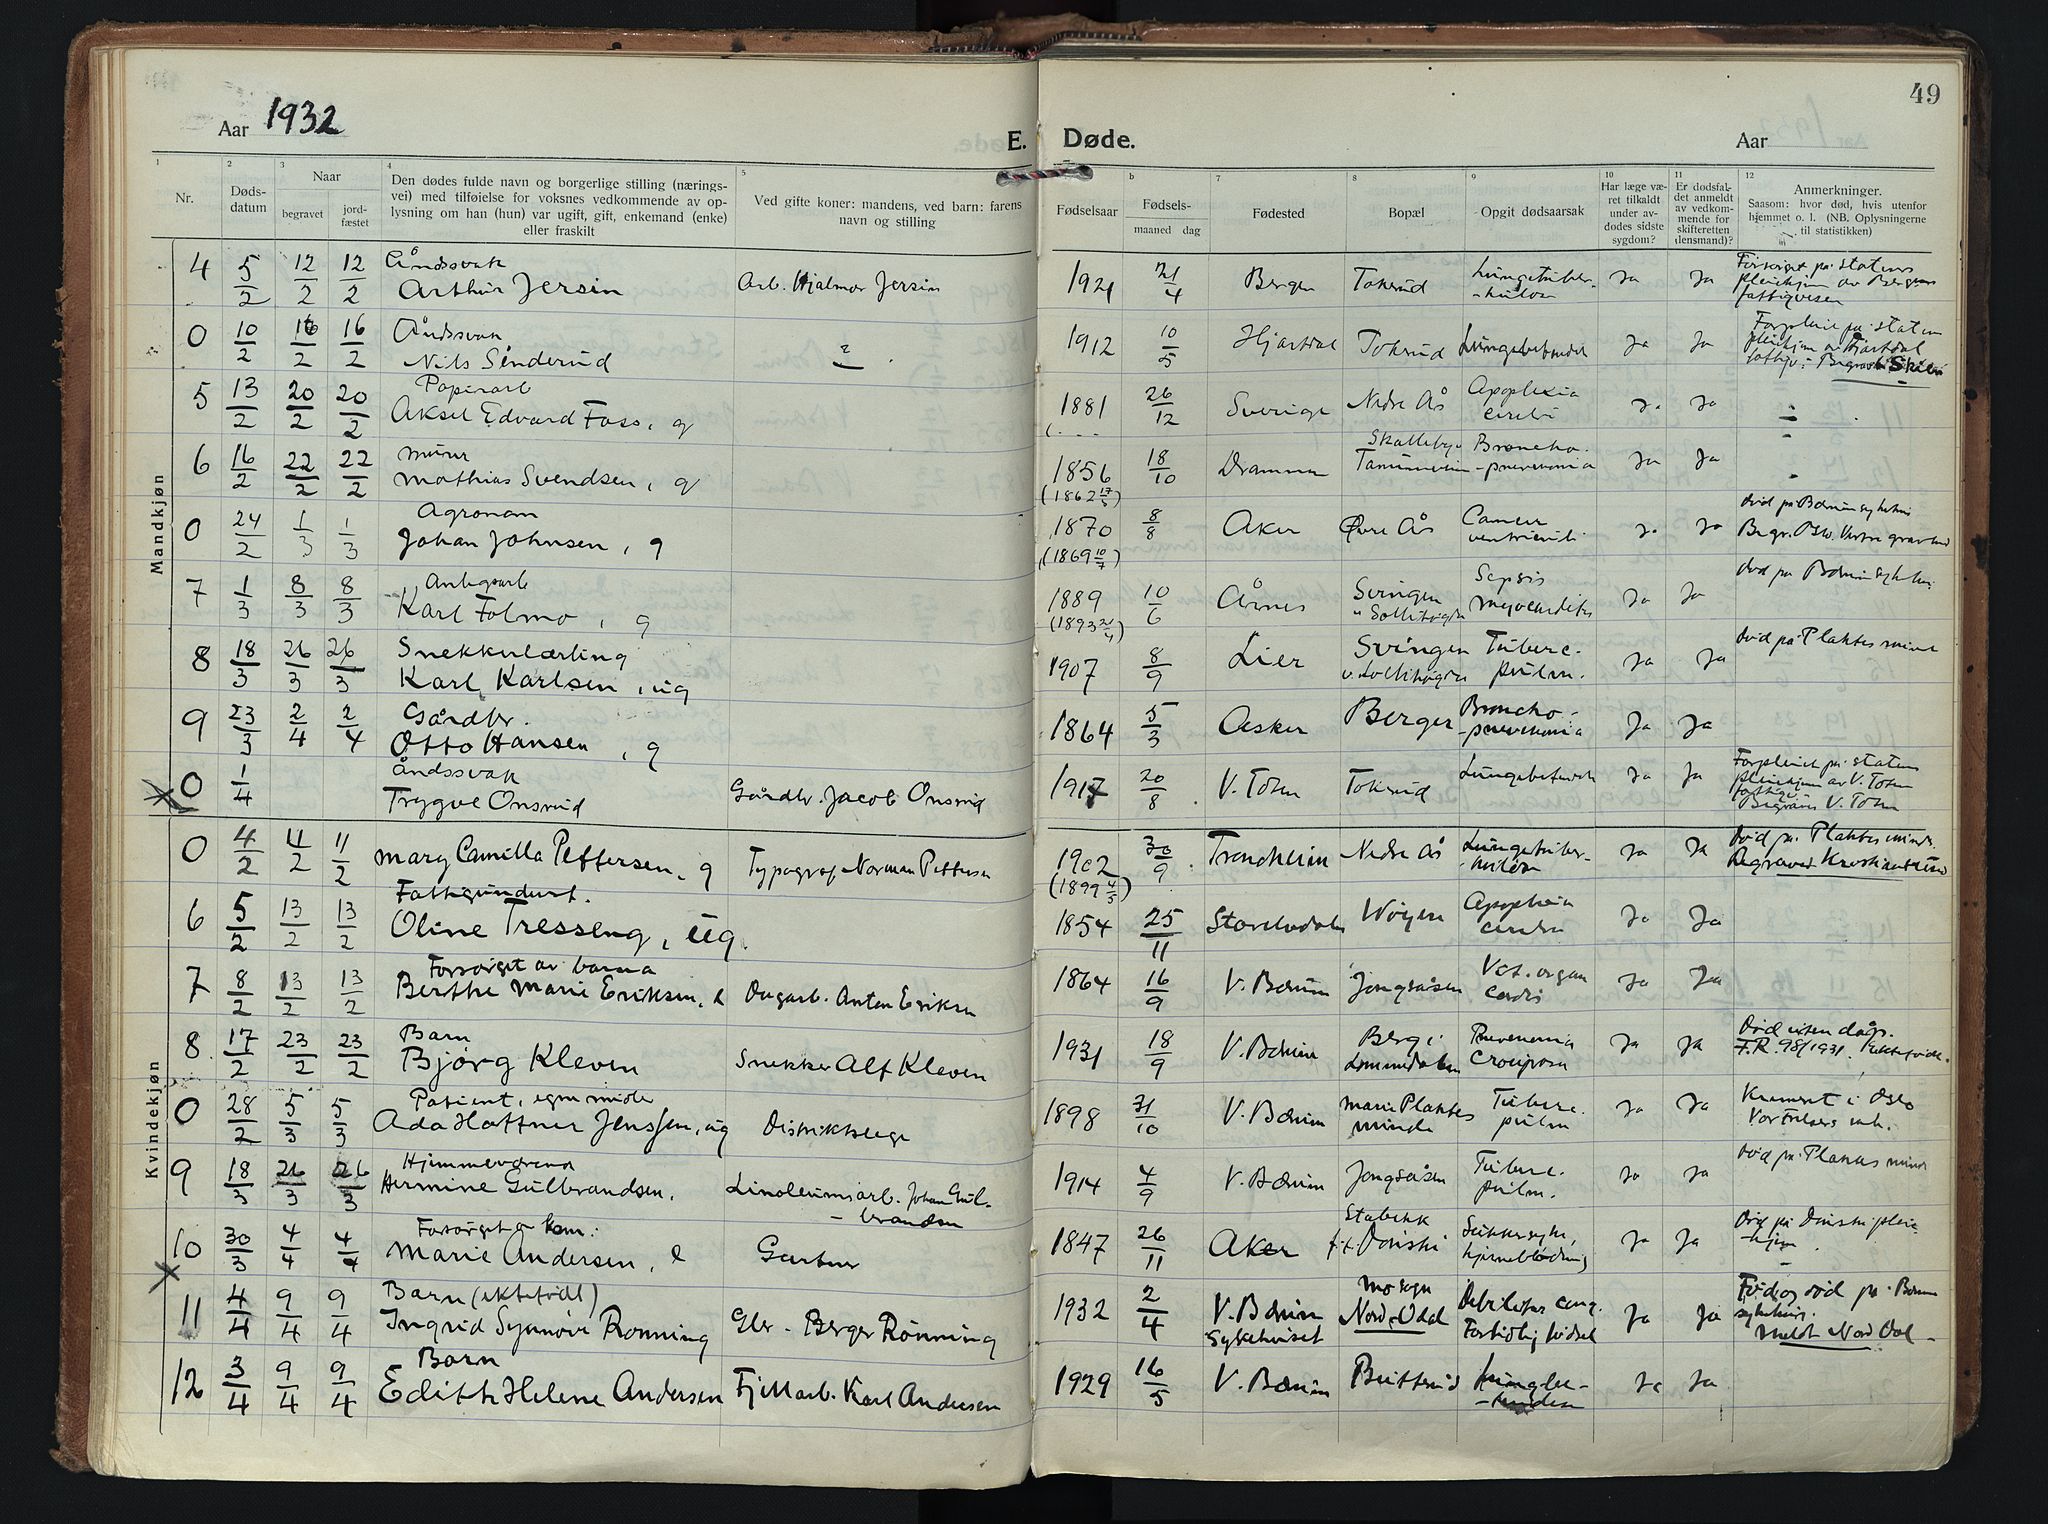 49
Aar 1932
E. Døde.
Aar
1 2 3 4 5 b 7 8 9 10 11 12
Nr.
Døds-
datum
Naar
begravet
jord-
fæstet
Den dødes fulde navn og borgerlige stilling (nærings-
vei) med tilføielse for voksnes vedkommende av op-
lysning om han (hun) var ugift, gift, enkemand (enke)
eller fraskilt
Ved gifte koner: mandens, ved barn: farens
navn og stilling
Fødselsaar
Fødsels-
maaned dag
Fødested
Bopæl
Opgit dødsaarsak
Har læge væ-
ret tilkaldt
under av-
dødes sidste
sygdom?
Er dødsfal-
det anmeldt
av vedkom-
mende for
skifteretten
(lensmand)?
Anmerkninger.
Saasom: hvor død, hvis utenfor
hjemmet o. l. (NB. Oplysningerne
til statistikken)
Mandkjøn
4 5/2 12/2 12/2 Åndssvak
Arthur Jersin Arb. Hjalmar Jersin 1921 21/4 Bergen Tokerud Lungetuber-
-kulose Ja Ja Forsørget på statens
pleiehjem av Bergens
fattigvesen
0 10/2 16/2 16/2 Åndssvak
Nils Sønderud ? 1912 10/5 Hjartdal Tokerud Ja Ja
pleiehjem av Hjartdal
5 13/2 20/2 20/2 Papirarb
Aksel Edvard Foss, g 1881 26/12 Sverige Nedre Ås Apoplexia
cerebri Ja Ja
6 16/2 22/2 22/2 Murer
Mathias Svendsen, g 1856 18/10 Drammen Broncho-
-pneumonia Ja Ja
(1862 17/5)
0 24/2 1/3 1/3 Agronom
Johan Johnsen, g 1870 8/8 Aker Øvre Ås Cancer
ventriculi Ja Ja død på Bærum sykehus
(1869 10/7)
7 1/3 8/3 8/3 Anlegsarb
Karl Folmo, g 1889 10/6 Årnes Svingen
v. Sollihøgda Sepsis
myocarditis Ja Ja død på Bærum sykehus
8 18/3 26/3 26/3 Snekkerlærling
Karl Karlsen, ug 1907 8/9 Lier Svingen
v. Sollihøgda Tuberc.
pulm. Ja Ja død på Plahtes minde
9 23/3 2/4 2/4 Gårdbr.
Otto Hansen, g 1864 5/3 Asker Berger Broncho-
-pneumonia Ja Ja
0 1/4 Åndssvak
Trygve Onsrud Gårdbr. Jacob Onsrud 1917 20/8 V. Toten Tokerud Ja Ja Forpleiet på statens
pleiehjem av V. Toten
fattigv.
Begraves V. Toten
Kvindekjøn
0 4/2 11/2 11/2 Mary Camilla Pettersen, g Typograf Norman Pettersen 1902 30/9 Trondheim Nedre Ås Lungetuber-
-kulose Ja Ja Død på Plahtes minde
Begraved
(1899 4/5)
6 5/2 13/2 13/2 Fattigunderst.
Oline Tresseng, ug. 1854 25/11 Storelvdalen Wøyen Apoplexia
cerebri Ja Ja
7 8/2 13/2 13/2 Forsørget av barna
Berthe Marie Eriksen, e Dagarb. Anton Eriksen 1864 16/9 V. Bærum Jongsåsen Vit. organ
cordis Ja Ja
8 17/2 23/2 23/2 Barn
Bjørg Kleven Snekker Alf Kleven 1931 18/9 V. Bærum Berg i
Lommedalen Pneumonia
Crouposa Ja Ja Død uten dåp.
F.R. 98/1931. Ektefødt.
0 28/2 5/3 5/3 Patient, egne midler
Ada Høffner Jenssen, ug Distriktslege 1898 31/10 V. Bærum Marie Plahtes
minde Tuberc.
pulm Ja Ja Kremert i Oslo
Vor Frelsers
9 18/3 26/3 26/3 Hjemmeværende
Hermine Gulbrandsen, Linoleumsarb. Johan Gul-
-brandsen 1914 4/9 V. Bærum Jongsåsen Tuberc.
pulm. Ja Ja død på Plahtes minde
10 30/3 4/4 4/4 Forsørget av kom:
Marie Andersen, e Gartner 1847 26/11 Aker Stabekk
f.t. Dønski Sukkersyke,
hjerneblødning Ja Ja Død på Dønski pleie-
-hjem
11 4/4 9/4 9/4 Barn (ektefødt)
Ingrid Synnøve Rønning Gbr. Berger Rønning 1932 2/4 V. Bærum
Sykehuset Mo sogn
Nord-Odal Debilitas cong.
Fortidlig fødsel Ja Ja Født og død på Bærum
sykehus.
Meldt Nord Odal
12 3/4 9/4 9/4 Barn
Edith Helene Andersen Fjellarb. Karl Andersen 1929 16/5 V. Bærum Butterud Ja Ja